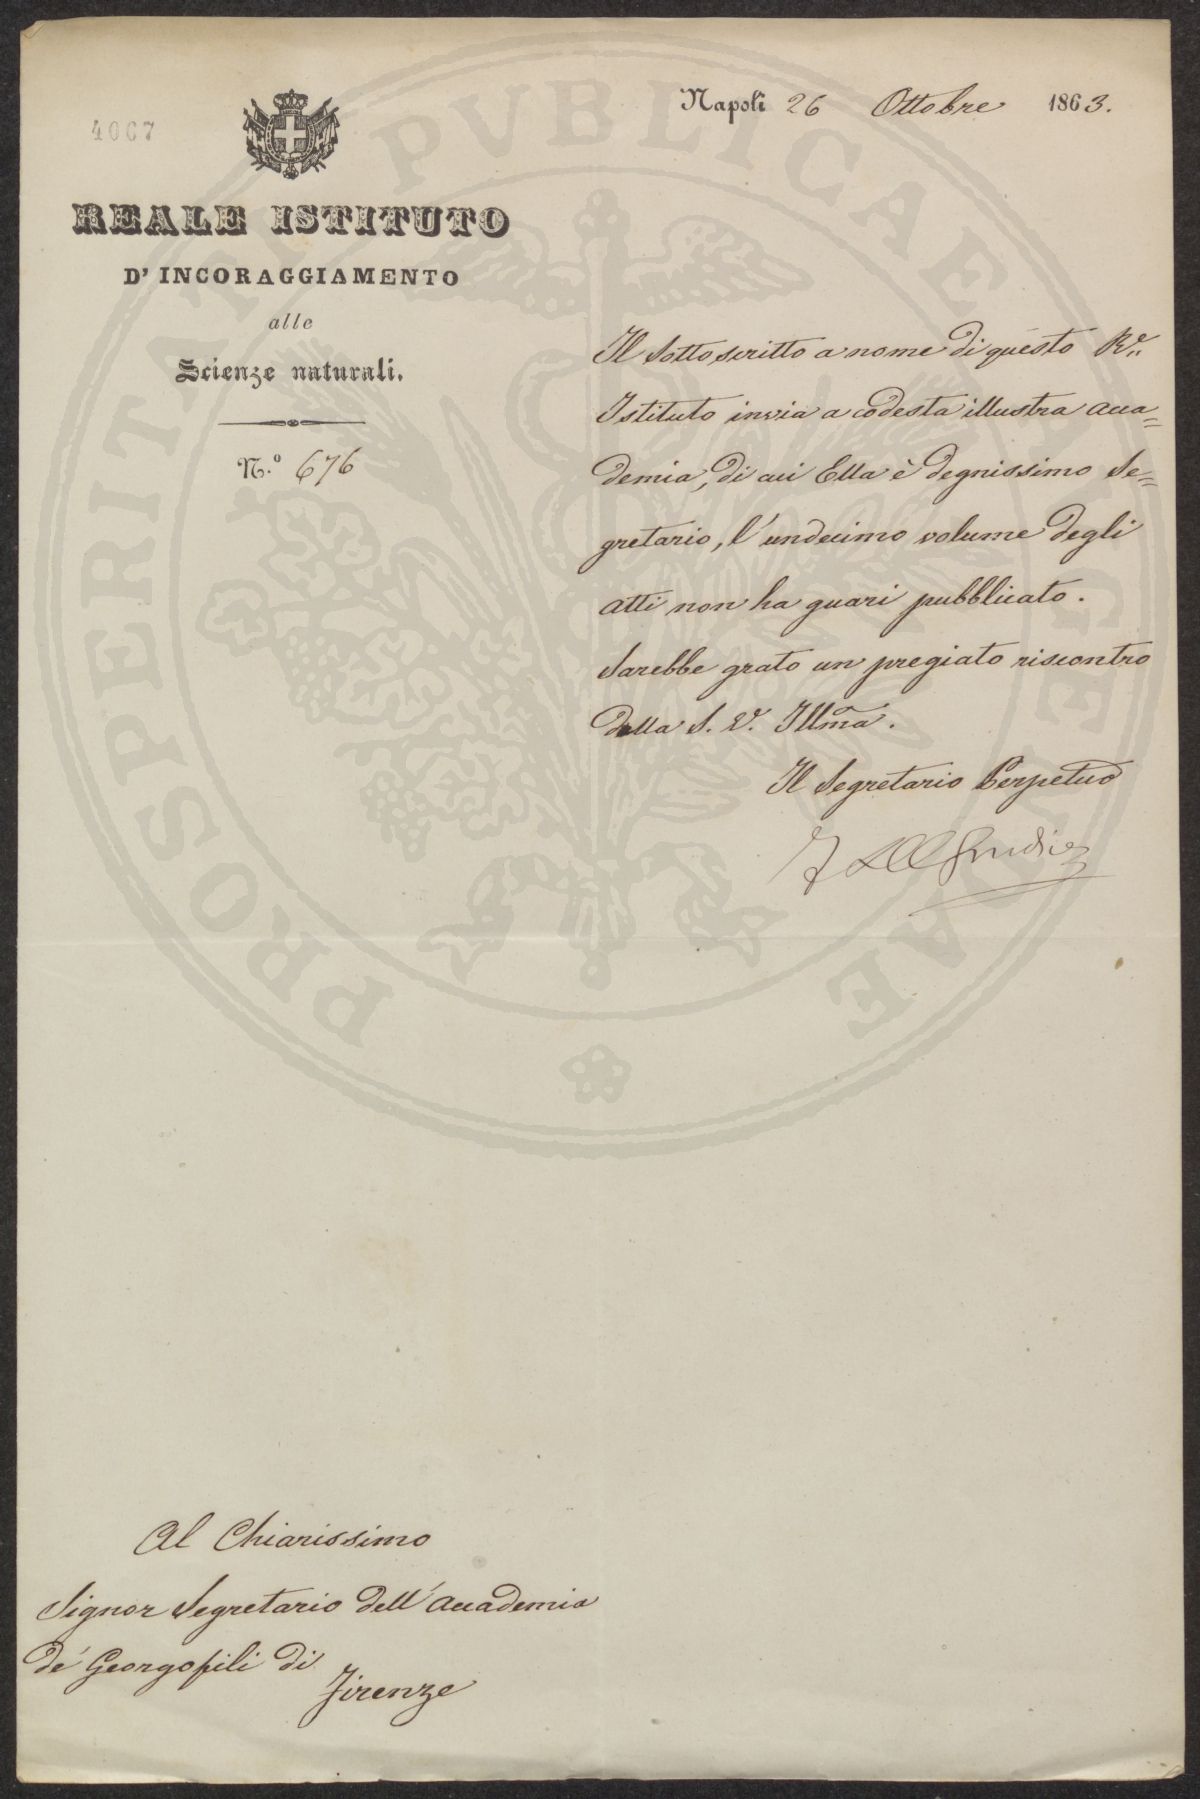 4067
Napoli 26 Ottobre 1863.
REALE ISTITUTO
D' INCORAGGIAMENTO
alle
Scienze naturali.
N.º 676
Il Sottoscritto a nome di questo R.e
Istituto invia a codesta illustra Acca=
demia, di cui Ella è degnissimo Se=
gretario, l'undecimo volume degli
atti non ha guari pubblicato.
Sarebbe grato un pregiato riscontro
della S. V. Illma.
Il Segretario Perpetuo
Al Chiarissimo
Signor Segretario dell'Accademia
de' Georgofili di
Firenze
PROSPERITATI PVBLICAE AVGENDAE